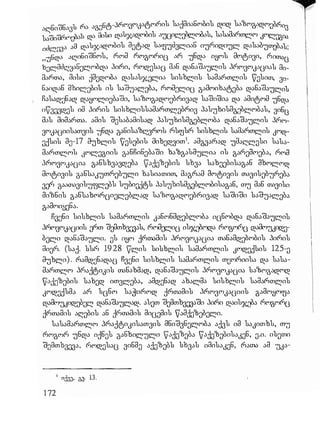 აღნიშნავს რა აგენტ-პროვოკატორის საქმიანობის დიდ საზოგადოებრივ
საშიშროებას და მისი დასჯადობის აუცილებლობას, სასამართლო კოლეგია
იძლევა ამ დასჯადობის მეტად საფუძვლიან იურიდიულ დასაბუთებას:
„უნდა აღინიშნოს, რომ როგორიც არ უნდა იყოს მოტივი, რითაც
ხელმძღვანელობდა პირი, როდესაც მან დანაშაულის პროვოკაციას მი-
მართა, მისი ქმედობა დასასჯელია სისხლის სამართლის წესით, ვი-
ნაიდან მხილების ის საშუალება, რომელიც გამოიხატება დანაშაულის
ჩასადენად დაყოლიებაში, საზოგადოებრივად საშიშია და ამიტომ უნდა
იწვევდეს ამ პირის სისხლისსამართლებრივ პასუხისმგებლობას, ვინც
მას მიმართა. ამის შესაბამისად პასუხისმგებლობა დანაშაულის პრო-
ვოკაციისათვის უნდა განისაზღვროს რსფსრ სისხლის სამართლის კოდ-
ექსის მე-17 მუხლის წესების მიხედვით¹. ამგვარად უმაღლესი სასა-
მართლოს კოლეგიის განჩინებაში ხაზგასმულია ის გარემოება, რომ
პროვოკაცია განსხვავდება წაქეზების სხვა სახეებისაგან მხოლოდ
მოტივის განსაკუთრებული ხასიათით, მაგრამ მოტივის თავისებურება
ვერ გაათავისუფლებს სუბიექტს პასუხისმგებლობისაგან, თუ მან თავისი
მიზნის განსახორციელებლად საზოგადოებრივად საშიში საშუალება
გამოიყენა.
ჩვენი სისხლის სამართლის კანონმდებლობა იცნობდა დანაშაულის
პროვოკაციის ერთ შემთხვევას, რომელიც ისჯებოდა როგორც დამოუკიდე-
ბელი დანაშაული. ეს იყო ქრთამის პროვოკაცია თანამდებობის პირის
მიერ (საქ. სსრ 1928 წლის სისხლის სამართლის კოდექსის 125-ე
მუხლი). რამდენადაც ჩვენი სისხლის სამართლის თეორიისა და სასა-
მართლო პრაქტიკის თანახმად, დანაშაულის პროვოკაცია საზოგადოდ
წაქეზების სახედ ითვლება, ამდენად ახალმა სისხლის სამართლის
კოდექსმა არ სცნო საჭიროდ ქრთამის პროვოკაციის გამოყოფა
დამოუკიდებელ დანაშაულად. ასეთ შემთხვევაში პირი დაისჯება როგორც
ქრთამის აღების ან ქრთამის მიცემის წამქეზებელი.
სასამართლო პრაქტიკისათვის მნიშვნელობა აქვს იმ საკითხს, თუ
როგორ უნდა იქნეს განხილული წაქეზება წაქეზებისაკენ, ე.ი. ისეთი
შემთხვევა, როდესაც ვინმე აქეზებს სხვას იმისაკენ, რათა ამ უკა-
¹ იქვე, გვ. 13.
172